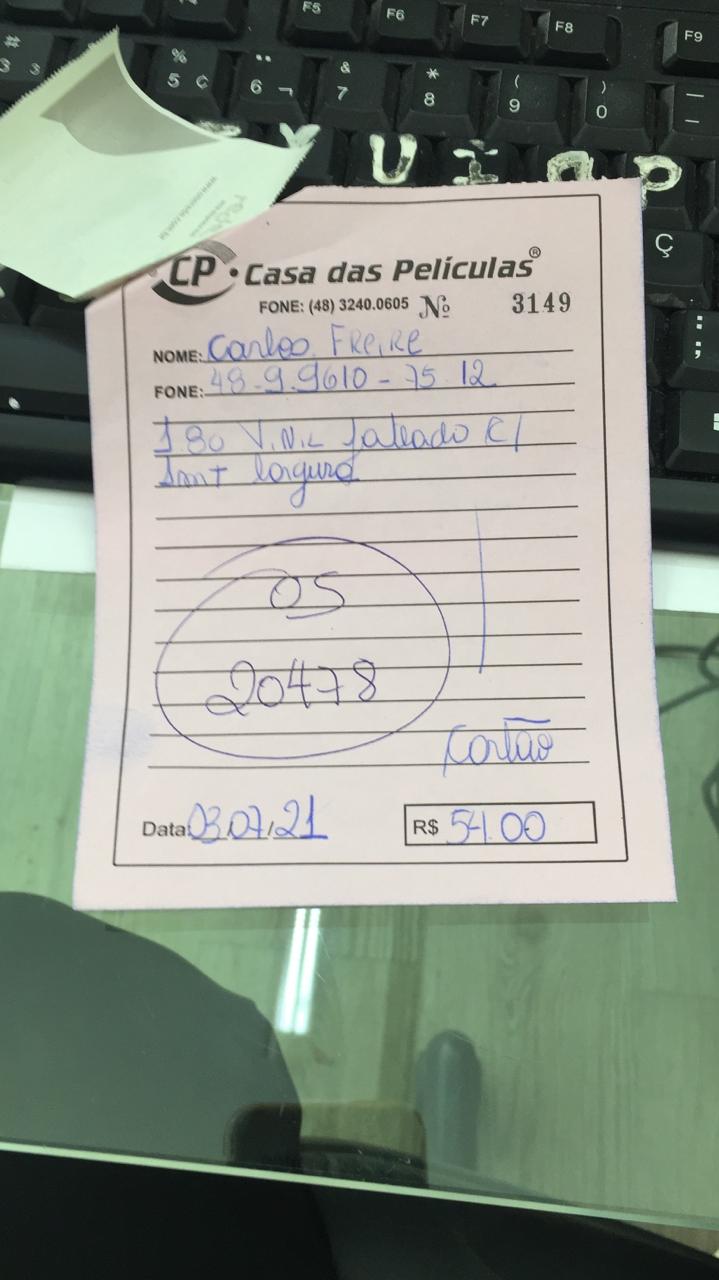 F5 F6 F7 F8 F9
# 3 3 % 5 ¢ ¨ 6 ¬ & 7 * 8 ( 9 ) 0 —
Y U I O P
Ç
: ;
CP • Casa das Películas®
FONE: (48) 3240.0605 Nº 3149
NOME: Carlos FREIRE
FONE: 48-9.9610-75.12
1.80 V.N.L Jateado C/
1mt largura
OS
20478
Cartão
Data: 03/07/21 R$ 54.00